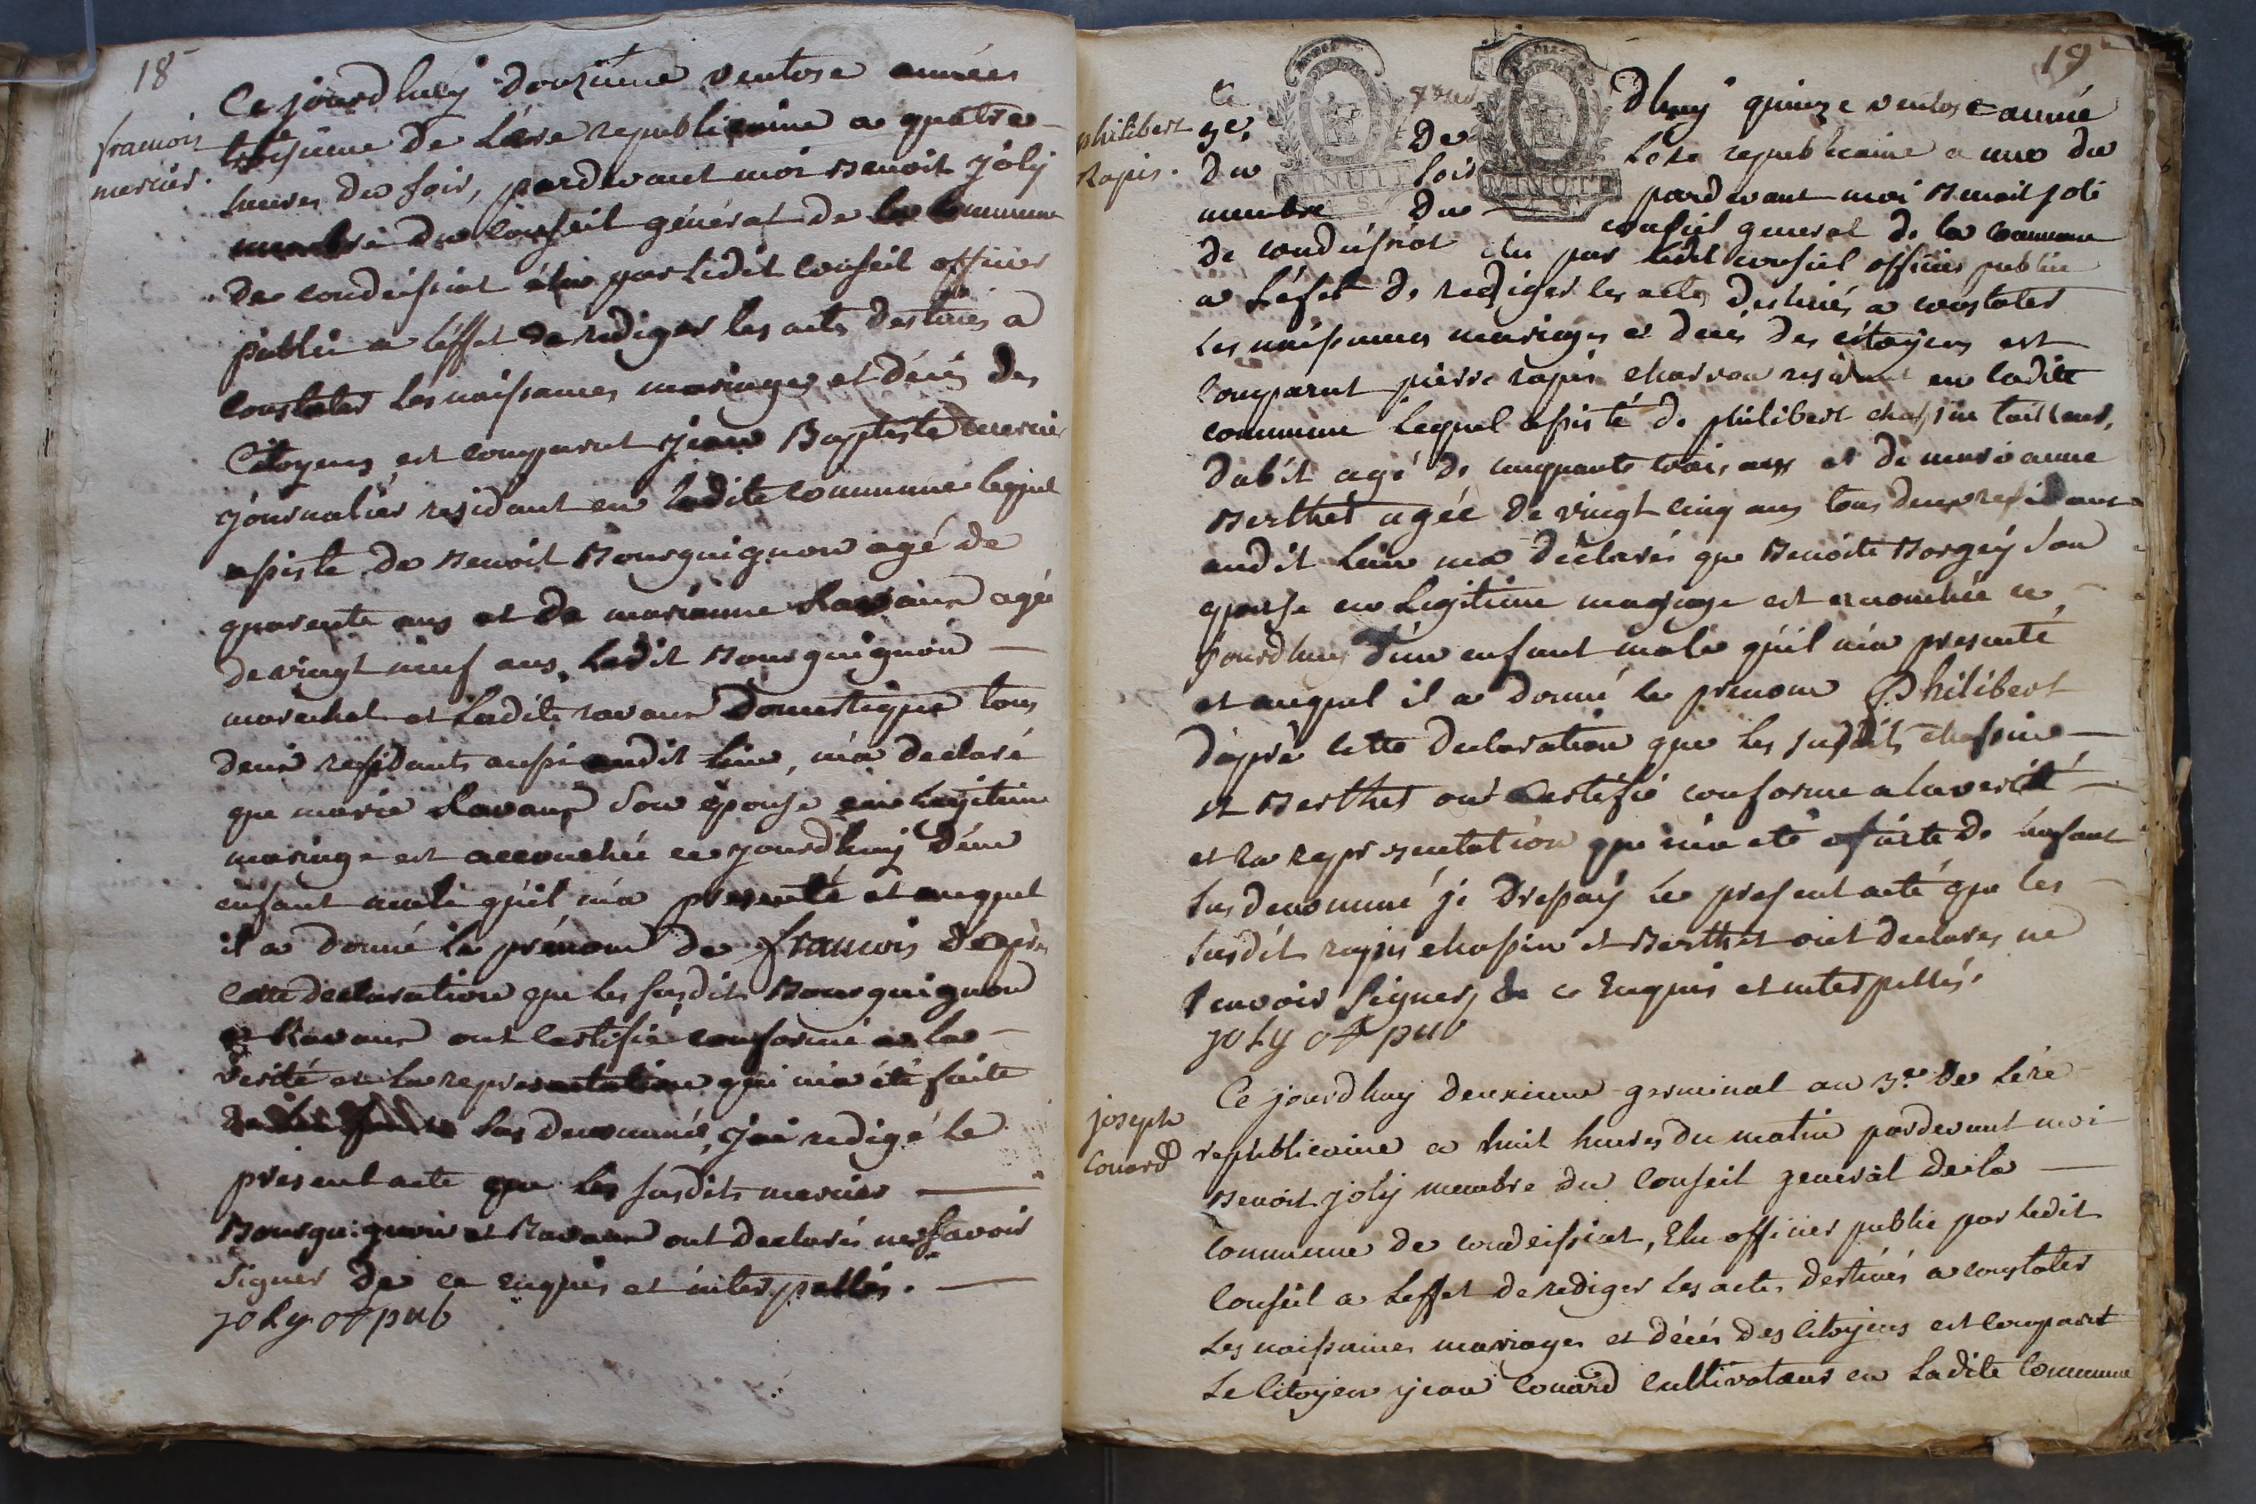 18
francois
mercier.
Ce jourd huy douzieme ventose année
troisieme de Lére republicaine a quatre
heures du soir, pardevant moi Benoit joly
membre du conseil général de la commune
de condeissiat élu par Ledit conseil officier
public a l'éffet de rediger les actes destinés a
constater Les naissances mariages et décés des
Citoyens est comparut jean Baptiste mercier
journalier residant en Ladite commune lequel
assiste de Benoit Bourguignon agé de
quarente ans et de marianne Ravaux agée
de vingt neuf ans, Ledit Bourguignon
marechal et Ladite ravaux Domestique tous
deux residants aussi audit Lieu, m'a declaré
que marie Ravaux son épouse en Legitime
mariage est accouchée ce jourd'huy d'un
enfant male qu'il m'a presenté et auquel
il a donné le prénom de francois d'après
cette declaration que les susdits Bourguignon
et Ravaux ont certifié conforme a la
verité et la representation qui m'a été faite
sus denommé, j'ai redigé Le
present acte que les susdits mercier
Bourguignon et Ravaux ont declarés ne savoir
signer de ce enquis et interpellés.
joly of pub
19
philibert
Rapis.
Ce jour
3e. De
Du soir
membre Du
Dhuy quinze ventose année
Lere republicaine a une du
pardevant moi Benoit joli
conseil general de la commune
de condeissiat élu par Ledit conseil officier public
a L'éfet de rediger les actes destinés a constater
Les naissances mariages et decés des citoyens est
comparut pierre rapis charron residant en ladite
commune Lequel assisté de philibert chassin tailleur
dabit agé de cinquante trois ans et de marianne
Berthet agée de vingt cinq ans tous deux residant
audit Lieu m'a déclarés que Benoite Borgey son
epouse en Legitime mariage est accouchée ce
jourdhuy d'un enfant male qu'il m'a presenté
et auquel il a donné le prenom Philibert
d'apprè cette declaration que Les susdits chassin
et Berthet ont certifié conforme a la verité
et la representation que m'a eté faite de l'enfant
sus denommé je dressay Le present acte que les
susdit rapis chassin et Berthet ont declarés ne
savoir signer de ce enquis et interpellés.
joly of pub
joseph
Couard
Ce jourd huy deuxieme germinal an 3.e de Lére
republicaine a huit heures du matin pardevant moi
Benoit joly membre du conseil general de la
commune de condeissiat, Elu officier public par Ledit
Conseil a Leffet de rediger Les actes destinés a constater
Les naissances mariages et décés des Citoyens est comparut
Le Citoyen jean Couard cultivateur en Ladite Commune